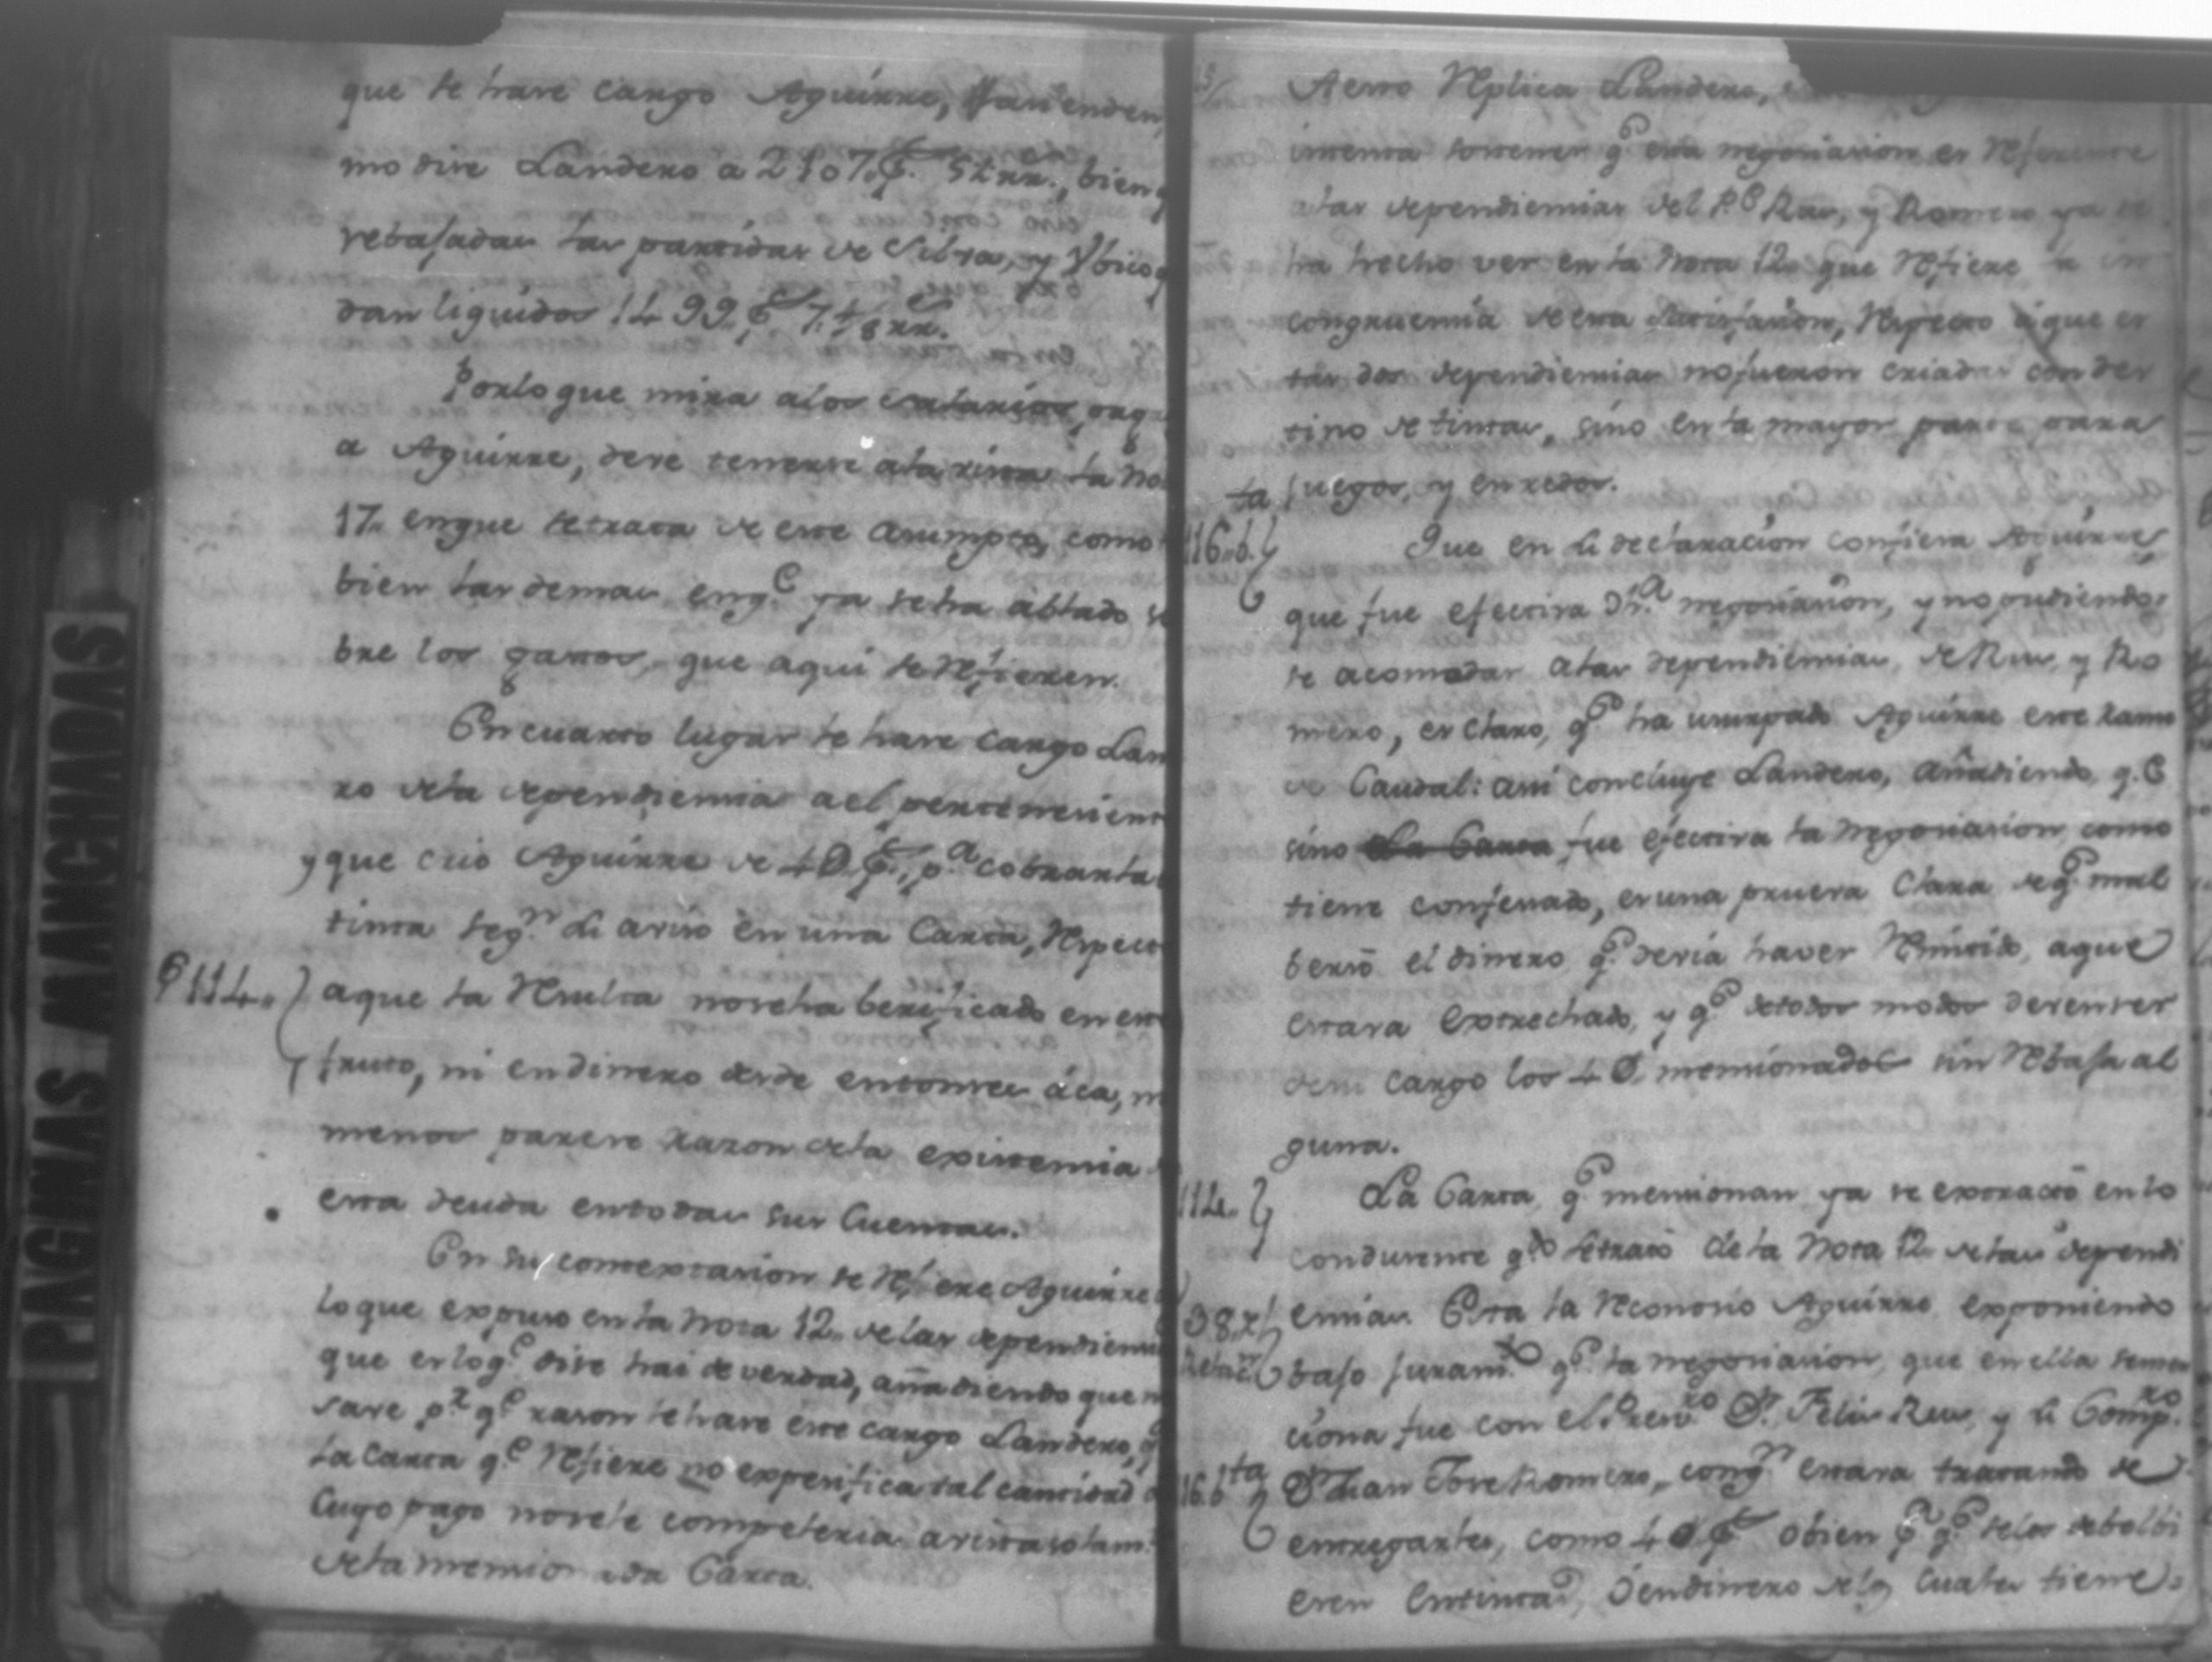 que se hace cargo Aguirre,
mo dice Landero a 2107 p.s 5½ rr.s, bien q
rebajadas las partidas de Silva, y
dan liquidos 1499 p.s 7 rr.s
Porlo que mira alos salarios, orq
a Aguirre, deve tenerse ala vista la No
17. enque setrata de este asumpto, como
bien las demas enq.e ya seha ablado so
bre los gastos, que aqui se Refieren.
En cuarto lugar se hace cargo Lan
ro dela dependiencia a el perteneciente
y que crio Aguirre de 4 D p.s, p.a cobrarla
tinta seg.n su aviso en una Carta, Respecto
114.
aque la Resulta nose ha berificado en este
fruto, ni en dinero desde entonces áca, ni
menos parece razon dela existencia
esta deuda entodas sus Cuentas.
En su contextacion se Refiere Aguirre
loque expuso en la Nota 12. delas dependiencias
que es loq.e dise hai de verdad, añadiendo que no
save p.r q.e razon se hace este cargo Landero,
la Carta q.e Refiere no experifica tal cantidad
Cuyo pago nosele competeria avista solam.te
dela mencionada Carta.
A esto Replica Landero,
intenta sostener q.e esta negociacion es Referente
alas dependiencias del P.e Rus, y Romero ya se
ha hecho ver en la Nota 12. que Refiere la in
congruencia de esta Satisfacion, Respecto á que es
tas dos dependiencias no fueron criadas con des
tino de tintas, sino en la mayor parte para
juegos, y enredos.
116. b.ta
Que en su declaracion confiesa Aguirre
que fue efectiva dha negociacion, y no pudiendo
se acomodar alas dependiencias, de Rus, y Ro
mero, es claro, q.e ha usurpado Aguirre este ramo
de Caudal: asi concluye Landero, añadiendo, q.e
sino la Carta fue efectiva la negociacion como
tiene confesado, es una prueva Clara deq.e mal
bersó el dinero q.e devia haver Remitido, aque
estava Extrechado, y q.e detodos modos deven ser
desu cargo los 4 D. mencionados sin Rebaja al
guna.
114.
La Carta q.e mencionan ya se extractó en lo
conducente q.do setrató de la Nota 12. delas dependi
38.
encias. Esta la Reconosio Aguirre exponiendo
bajo juram.to q.e la negociacion, que en ella semen
ciona fue con el Presv.ro D.n Felis Rus, y su Comp.ro
116. b.ta
D.n Juan Jose Romero, conq.n estava tratando de
entregarles, como 4 D p.s obien p.a q.e selos debolbi
esen Entinta, ó endinero delos cuales tiene